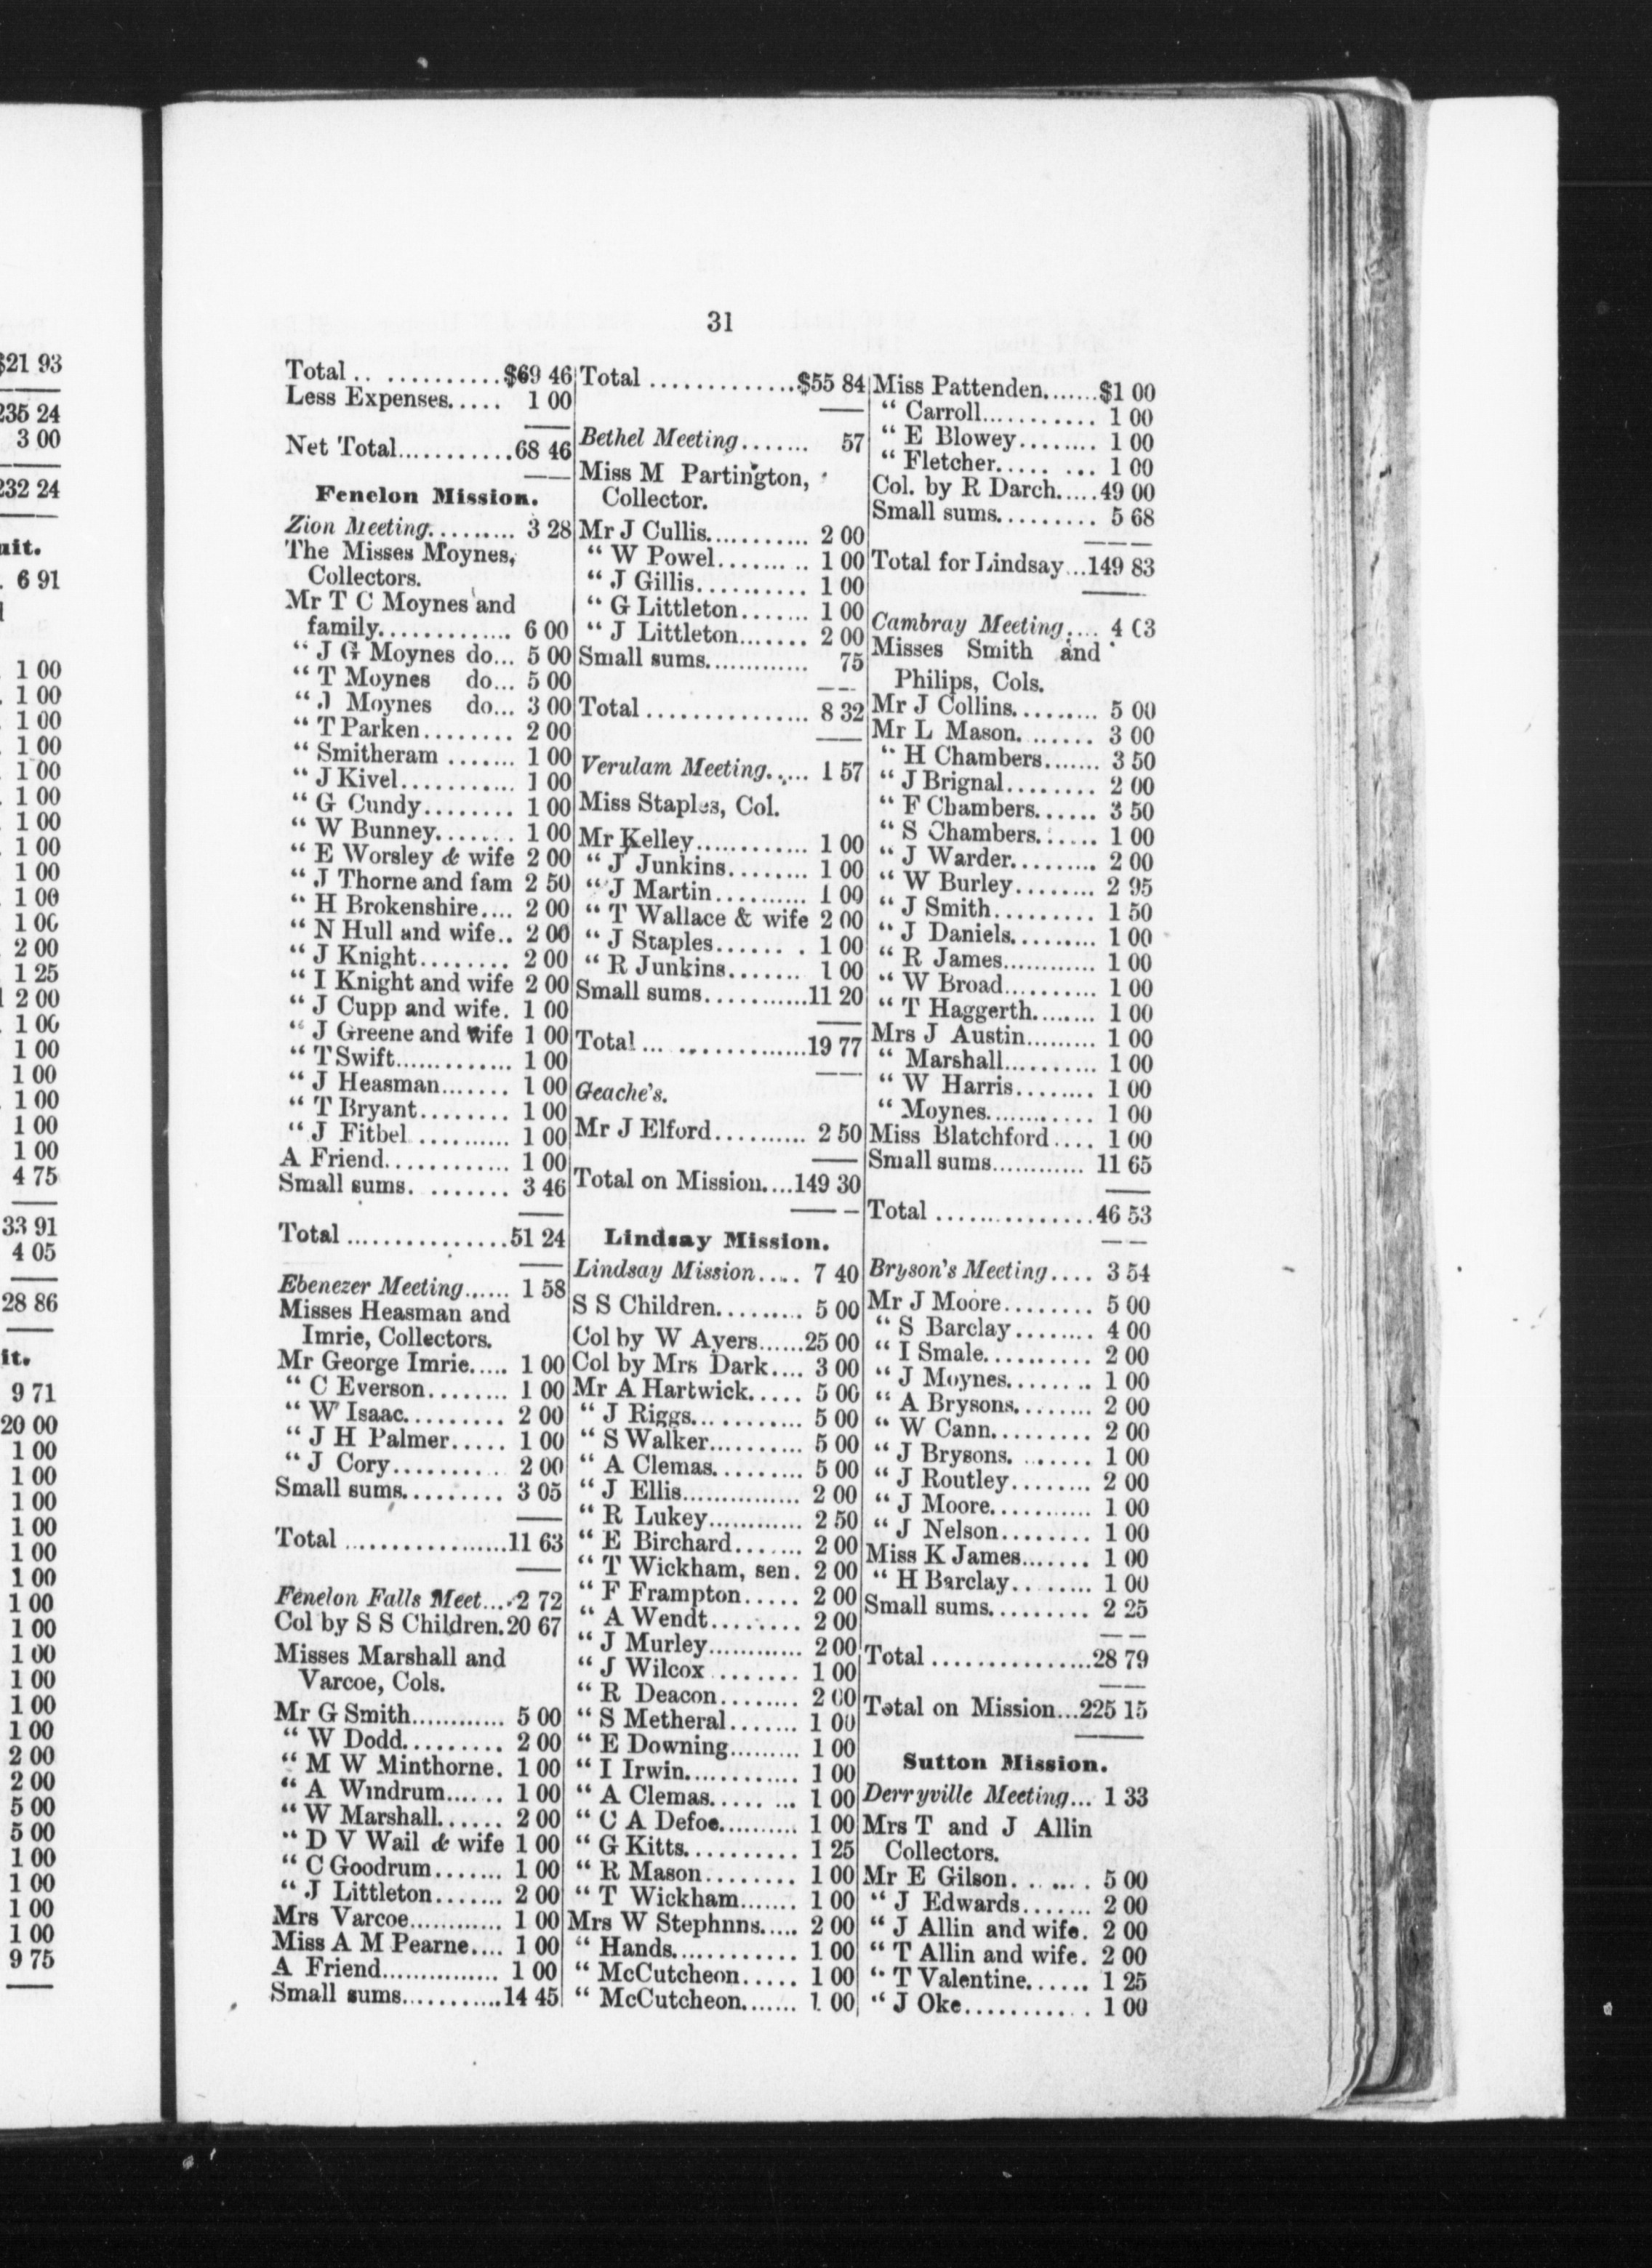 $21 93
235 24
3 00
232 24
uit.
6 91
1 00
1 00
1 00
1 00
1 00
1 00
1 00
1 00
1 00
1 00
1 00
2 00
1 25
2 00
1 00
1 00
1 00
1 00
1 00
1 00
4 75
33 91
4 05
28 86
it.
9 71
20 00
1 00
1 00
1 00
1 00
1 00
1 00
1 00
1 00
1 00
1 00
1 00
1 00
2 00
2 00
5 00
5 00
1 00
1 00
1 00
1 00
9 75
31
Total .. ...........$69 46
Less Expenses..... 1 00
Net Total...........68 46
Fenelon Mission.
Zion Meeting......... 3 28
The Misses Moynes,
Collectors.
Mr T C Moynes and
family............. 6 00
“ J G Moynes do... 5 00
“ T Moynes do... 5 00
“ J Moynes do... 3 00
“ T Parken........ 2 00
“ Smitheram ....... 1 00
“ J Kivel........... 1 00
“ G Cundy........ 1 00
“ W Bunney....... 1 00
“ E Worsley & wife 2 00
“ J Thorne and fam 2 50
“ H Brokenshire.... 2 00
“ N Hull and wife.. 2 00
“ J Knight........ 2 00
“ I Knight and wife 2 00
“ J Cupp and wife. 1 00
“ J Greene and wife 1 00
“ T Swift............. 1 00
“ J Heasman....... 1 00
“ T Bryant........ 1 00
“ J Fitbel .......... 1 00
A Friend............ 1 00
Small sums. ........ 3 46
Total ...............51 24
Ebenezer Meeting...... 1 58
Misses Heasman and
Imrie, Collectors.
Mr George Imrie..... 1 00
“ C Everson........ 1 00
“ W Isaac......... 2 00
“ J H Palmer..... 1 00
“ J Cory.......... 2 00
Small sums......... 3 05
Total ................11 63
Fenelon Falls Meet.... 2 72
Col by S S Children.20 67
Misses Marshall and
Varcoe, Cols.
Mr G Smith............ 5 00
“ W Dodd......... 2 00
“ M W Minthorne. 1 00
“ A Windrum...... 1 00
“ W Marshall...... 2 00
“ D V Wail & wife 1 00
“ C Goodrum....... 1 00
“ J Littleton....... 2 00
Mrs Varcoe............ 1 00
Miss A M Pearne.... 1 00
A Friend............... 1 00
Small sums...........14 45
Total .............$55 84
Bethel Meeting....... 57
Miss M Partington,
Collector.
Mr J Cullis........... 2 00
“ W Powel......... 1 00
“ J Gillis.......... 1 00
“ G Littleton....... 1 00
“ J Littleton....... 2 00
Small sums............ 75
Total ............... 8 32
Verulam Meeting..... 1 57
Miss Staples, Col.
Mr Kelley............ 1 00
“ J Junkins........ 1 00
“ J Martin.......... 1 00
“ T Wallace & wife 2 00
“ J Staples....... . 1 00
“ R Junkins....... 1 00
Small sums...........11 20
Total ... .............19 77
Geache's.
Mr J Elford.......... 2 50
Total on Mission....149 30
Lindsay Mission.
Lindsay Mission..... 7 40
S S Children......... 5 00
Col by W Ayers......25 00
Col by Mrs Dark.... 3 00
Mr A Hartwick..... 5 00
“ J Riggs........... 5 00
“ S Walker.......... 5 00
“ A Clemas......... 5 00
“ J Ellis............... 2 00
“ R Lukey............ 2 50
“ E Birchard....... 2 00
“ T Wickham, sen. 2 00
“ F Frampton..... 2 00
“ A Wendt......... 2 00
“ J Murley............ 2 00
“ J Wilcox ........ 1 00
“ R Deacon........ 2 00
“ S Metheral....... 1 00
“ E Downing......... 1 00
“ I Irwin............ 1 00
“ A Clemas..... ... 1 00
“ C A Defoe.......... 1 00
“ G Kitts.......... 1 25
“ R Mason........ 1 00
“ T Wickham....... 1 00
Mrs W Stephnns..... 2 00
“ Hands............ 1 00
“ McCutcheon..... 1 00
“ McCutcheon....... 1 00
Miss Pattenden.......$1 00
“ Carroll........... 1 00
“ E Blowey........ 1 00
“ Fletcher..... ... 1 00
Col. by R Darch.....49 00
Small sums......... 5 68
Total for Lindsay...149 83
Cambray Meeting.... 4 03
Misses Smith and
Philips, Cols.
Mr J Collins......... 5 00
Mr L Mason. ....... 3 00
“ H Chambers....... 3 50
“ J Brignal........ 2 00
“ F Chambers...... 3 50
“ S Chambers....... 1 00
“ J Warder......... 2 00
“ W Burley........ 2 95
“ J Smith......... 1 50
“ J Daniels......... 1 00
“ R James............ 1 00
“ W Broad.......... 1 00
“ T Haggerth........ 1 00
Mrs J Austin......... 1 00
“ Marshall.......... 1 00
“ W Harris........ 1 00
“ Moynes............ 1 00
Miss Blatchford .... 1 00
Small sums............ 11 65
Total ...............46 53
Bryson's Meeting.... 3 54
Mr J Moore........ 5 00
“ S Barclay........ 4 00
“ I Smale.......... 2 00
“ J Moynes........ 1 00
“ A Brysons........ 2 00
“ W Cann......... 2 00
“ J Brysons. ....... 1 00
“ J Routley........ 2 00
“ J Moore........... 1 00
“ J Nelson........ 1 00
Miss K James....... 1 00
“ H Barclay........ 1 00
Small sums......... 2 25
Total ................28 79
Total on Mission...225 15
Sutton Mission.
Derryville Meeting... 1 33
Mrs T and J Allin
Collectors.
Mr E Gilson. . ... . . 5 00
“ J Edwards....... 2 00
“ J Allin and wife. 2 00
“ T Allin and wife. 2 00
“ T Valentine...... 1 25
“ J Oke........... . 1 00